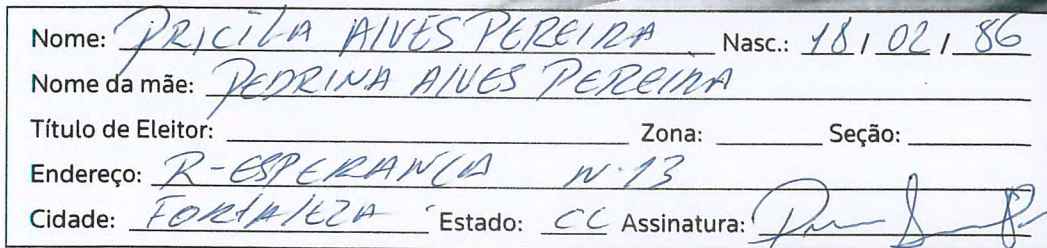 Nome: PRICILA ALVES PEREIRA Nasc.: 18/02/86
Nome da mãe: PEDRINA ALVES PEREIRA
Título de Eleitor: Zona: Seção:
Endereço: R-ESPERANÇA N.13
Cidade: FORTALEZA Estado: CE Assinatura: